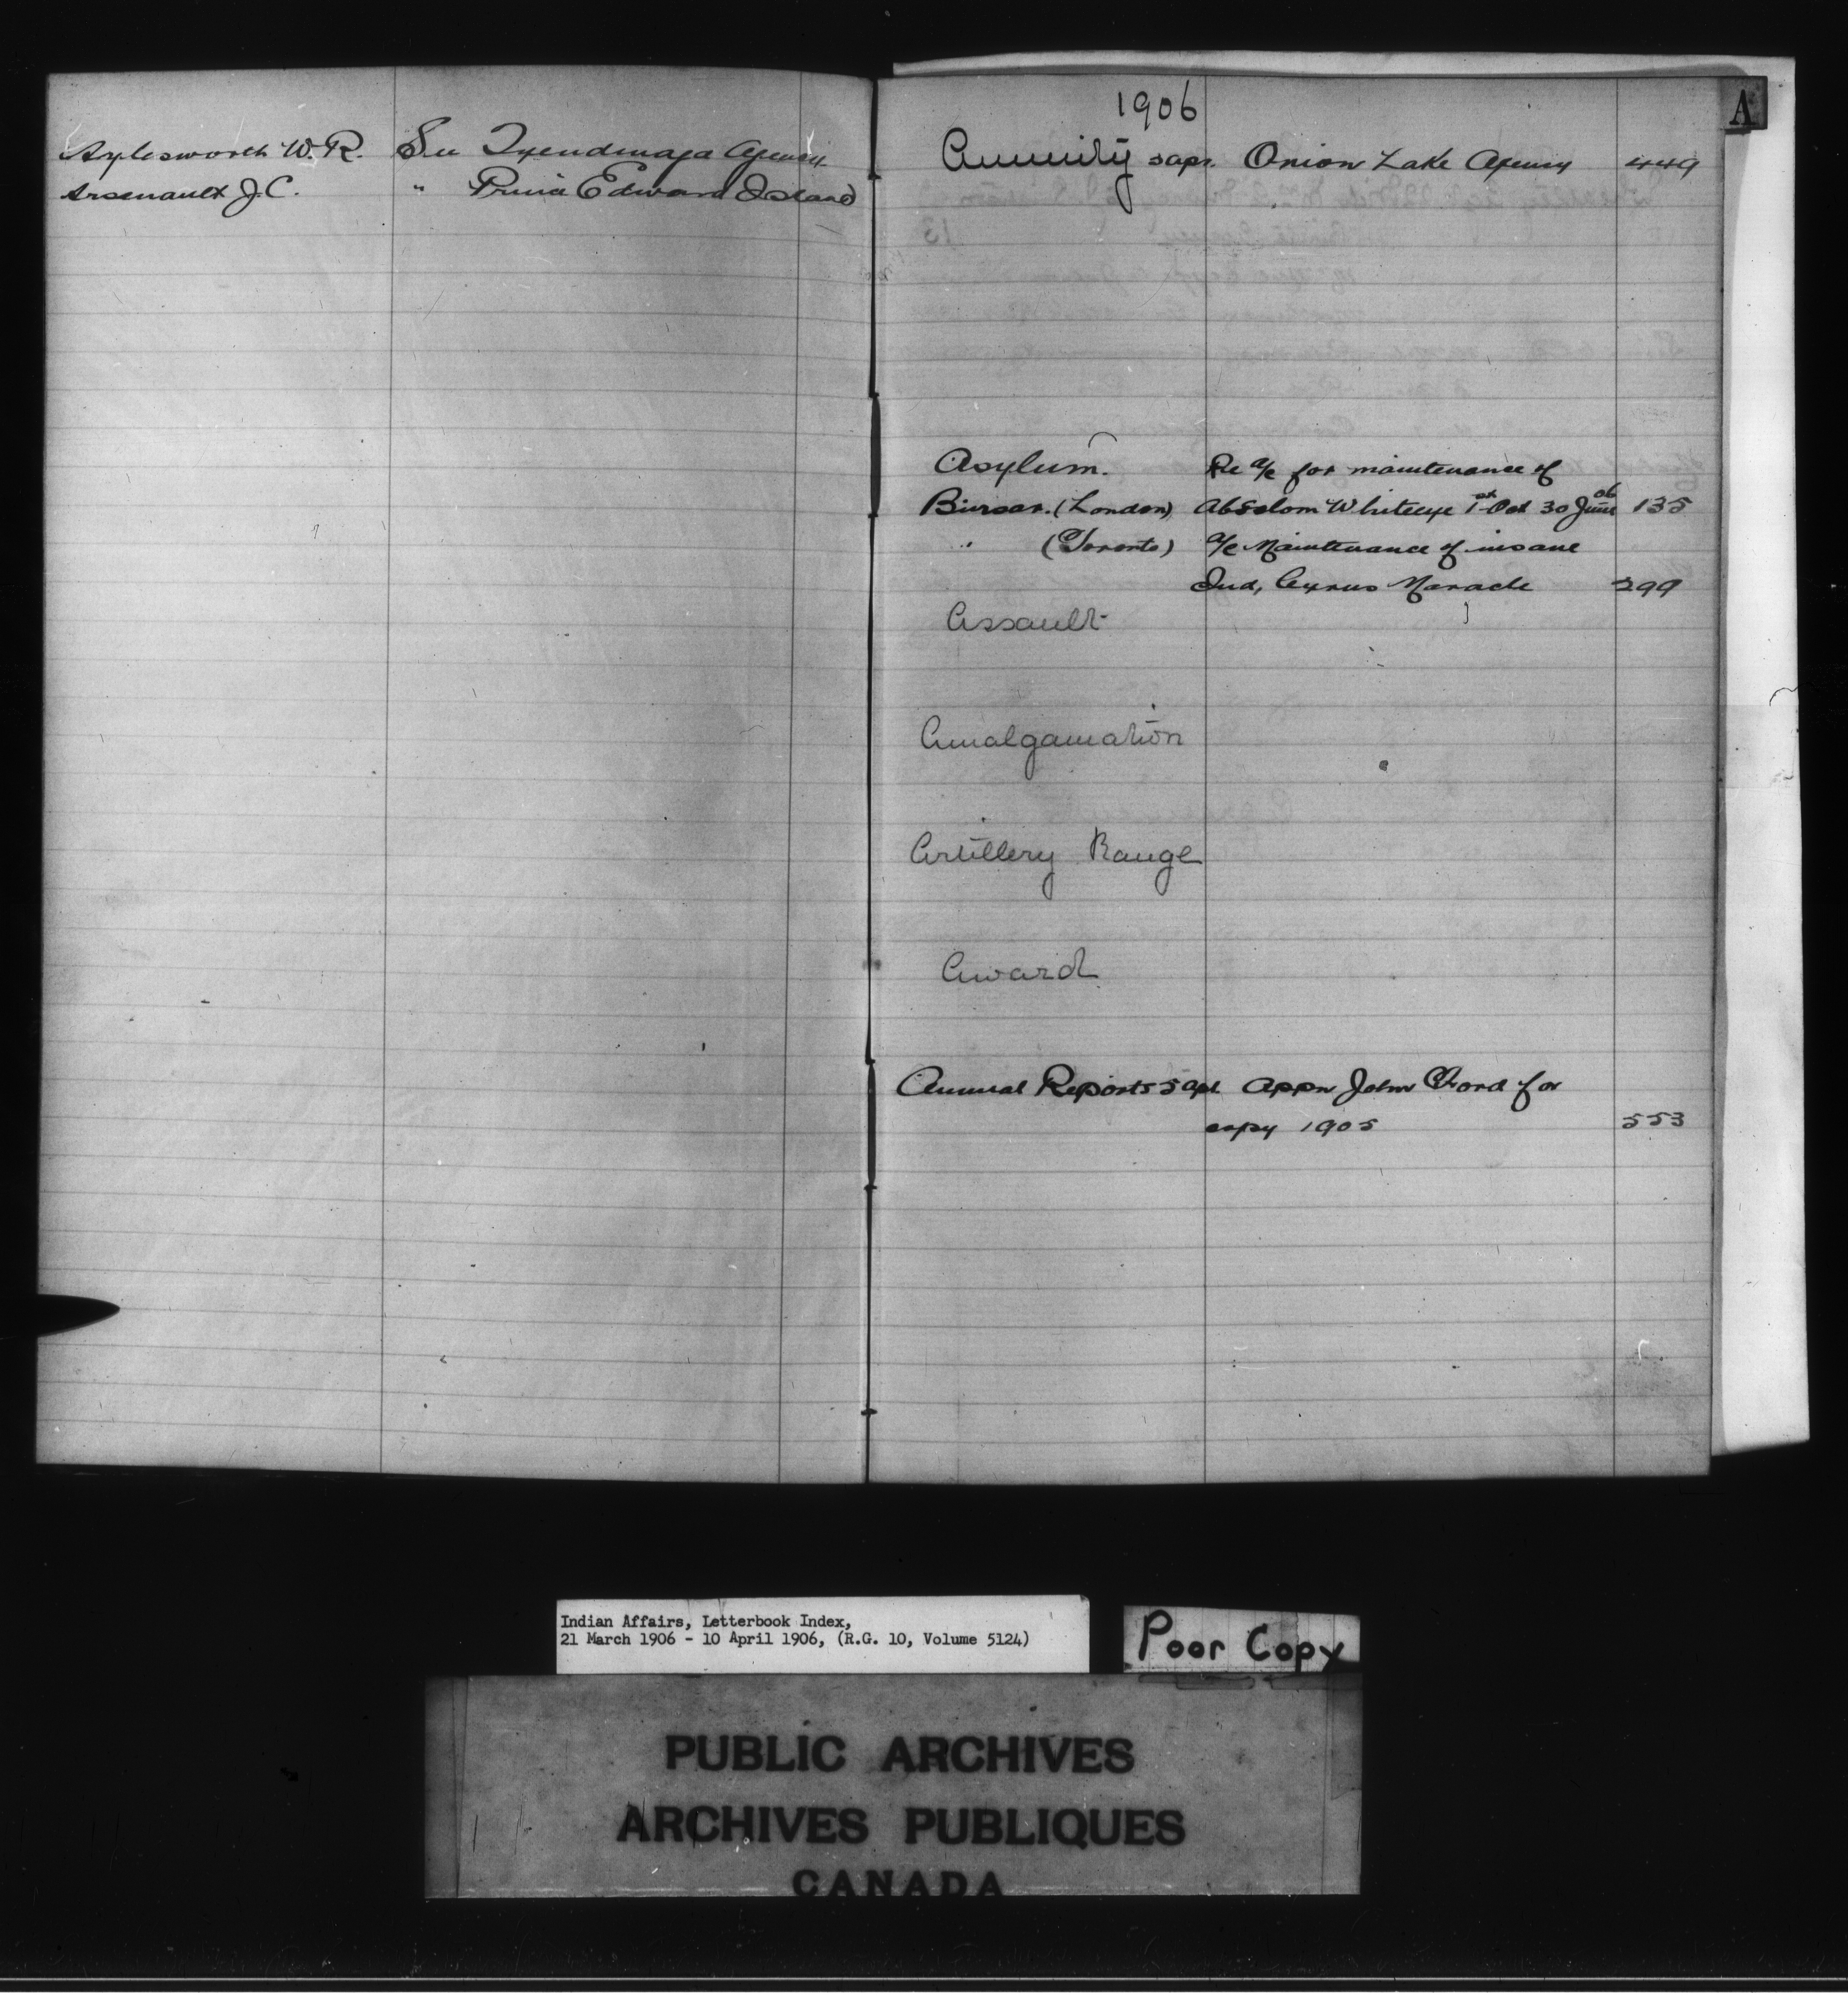 Aylesworth W. R. See Tyendinaga Agency
Arsenault J. C. " Prince Edward Island
1906
A
Annuity Onion Lake Agency 449
Asylum. Re a/c for maintenance of
Bursar. (London) Absolom Whiteeye 1st Oct 30 June 06 135
" (Toronto) a/c Maintenance of insane
Ind, Cyrus Maracle 299
Assault
Amalgamation
Artillery Range
Award
Annual Reports Appn John Ford for
copy 1905 553
Indian Affairs, Letterbook Index,
21 March 1906 - 10 April 1906, (R.G. 10, Volume 5124)
Poor Copy
PUBLIC ARCHIVES
ARCHIVES PUBLIQUES
CANADA